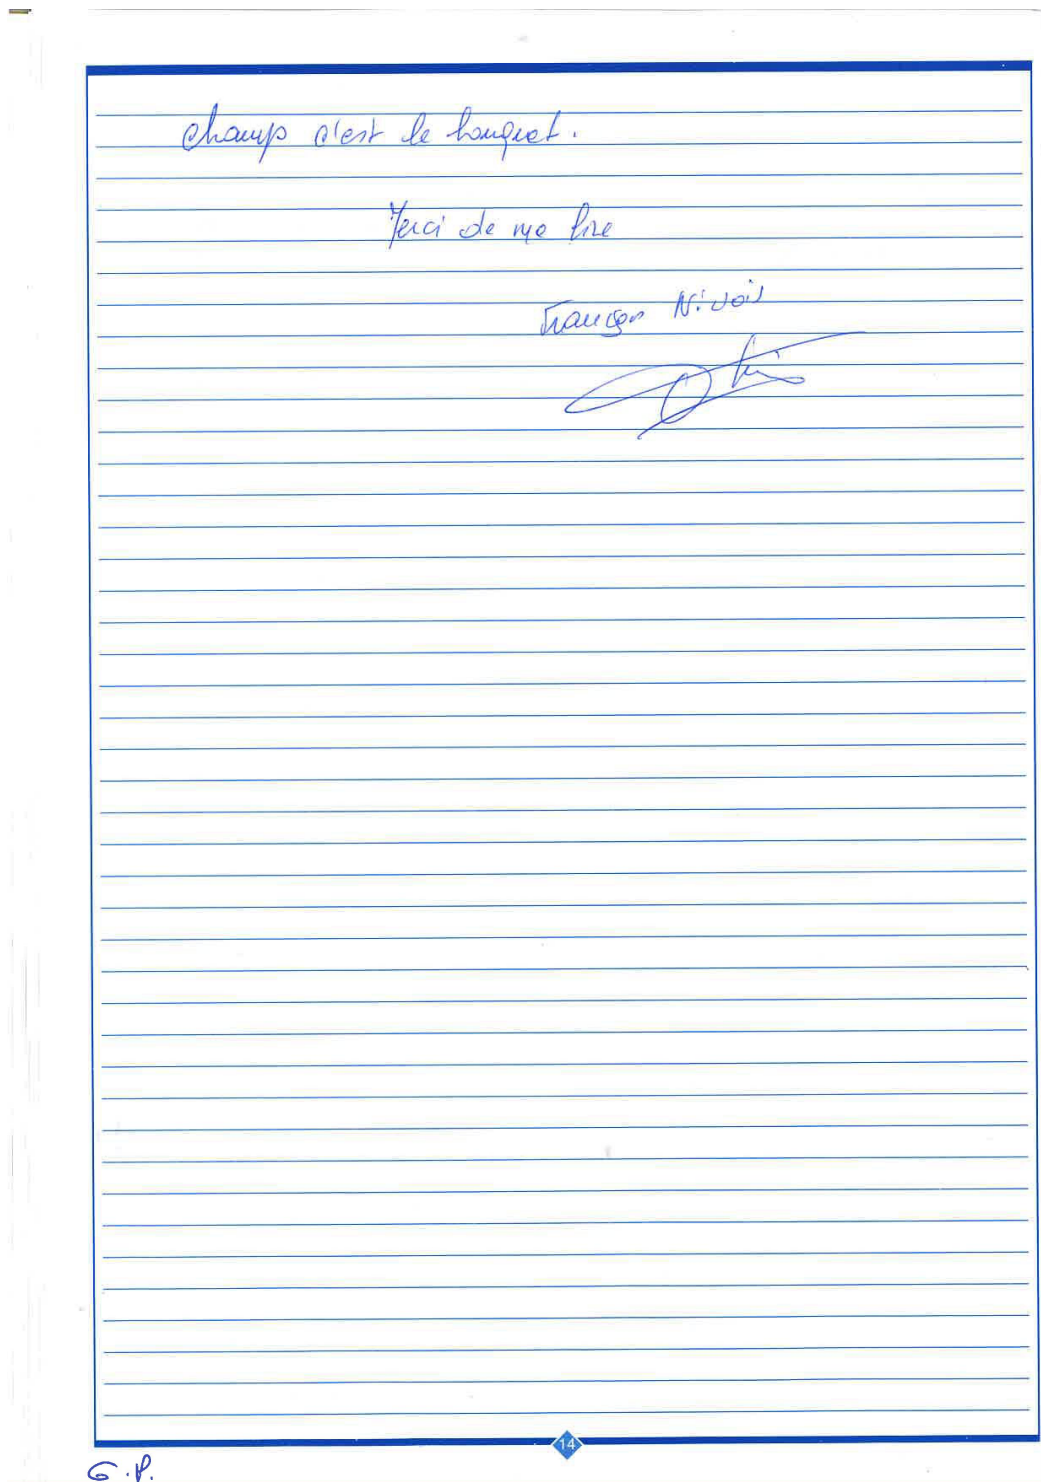 champ c'est le bouquet.
Merci de me lire
François Nivois
14
G.P.